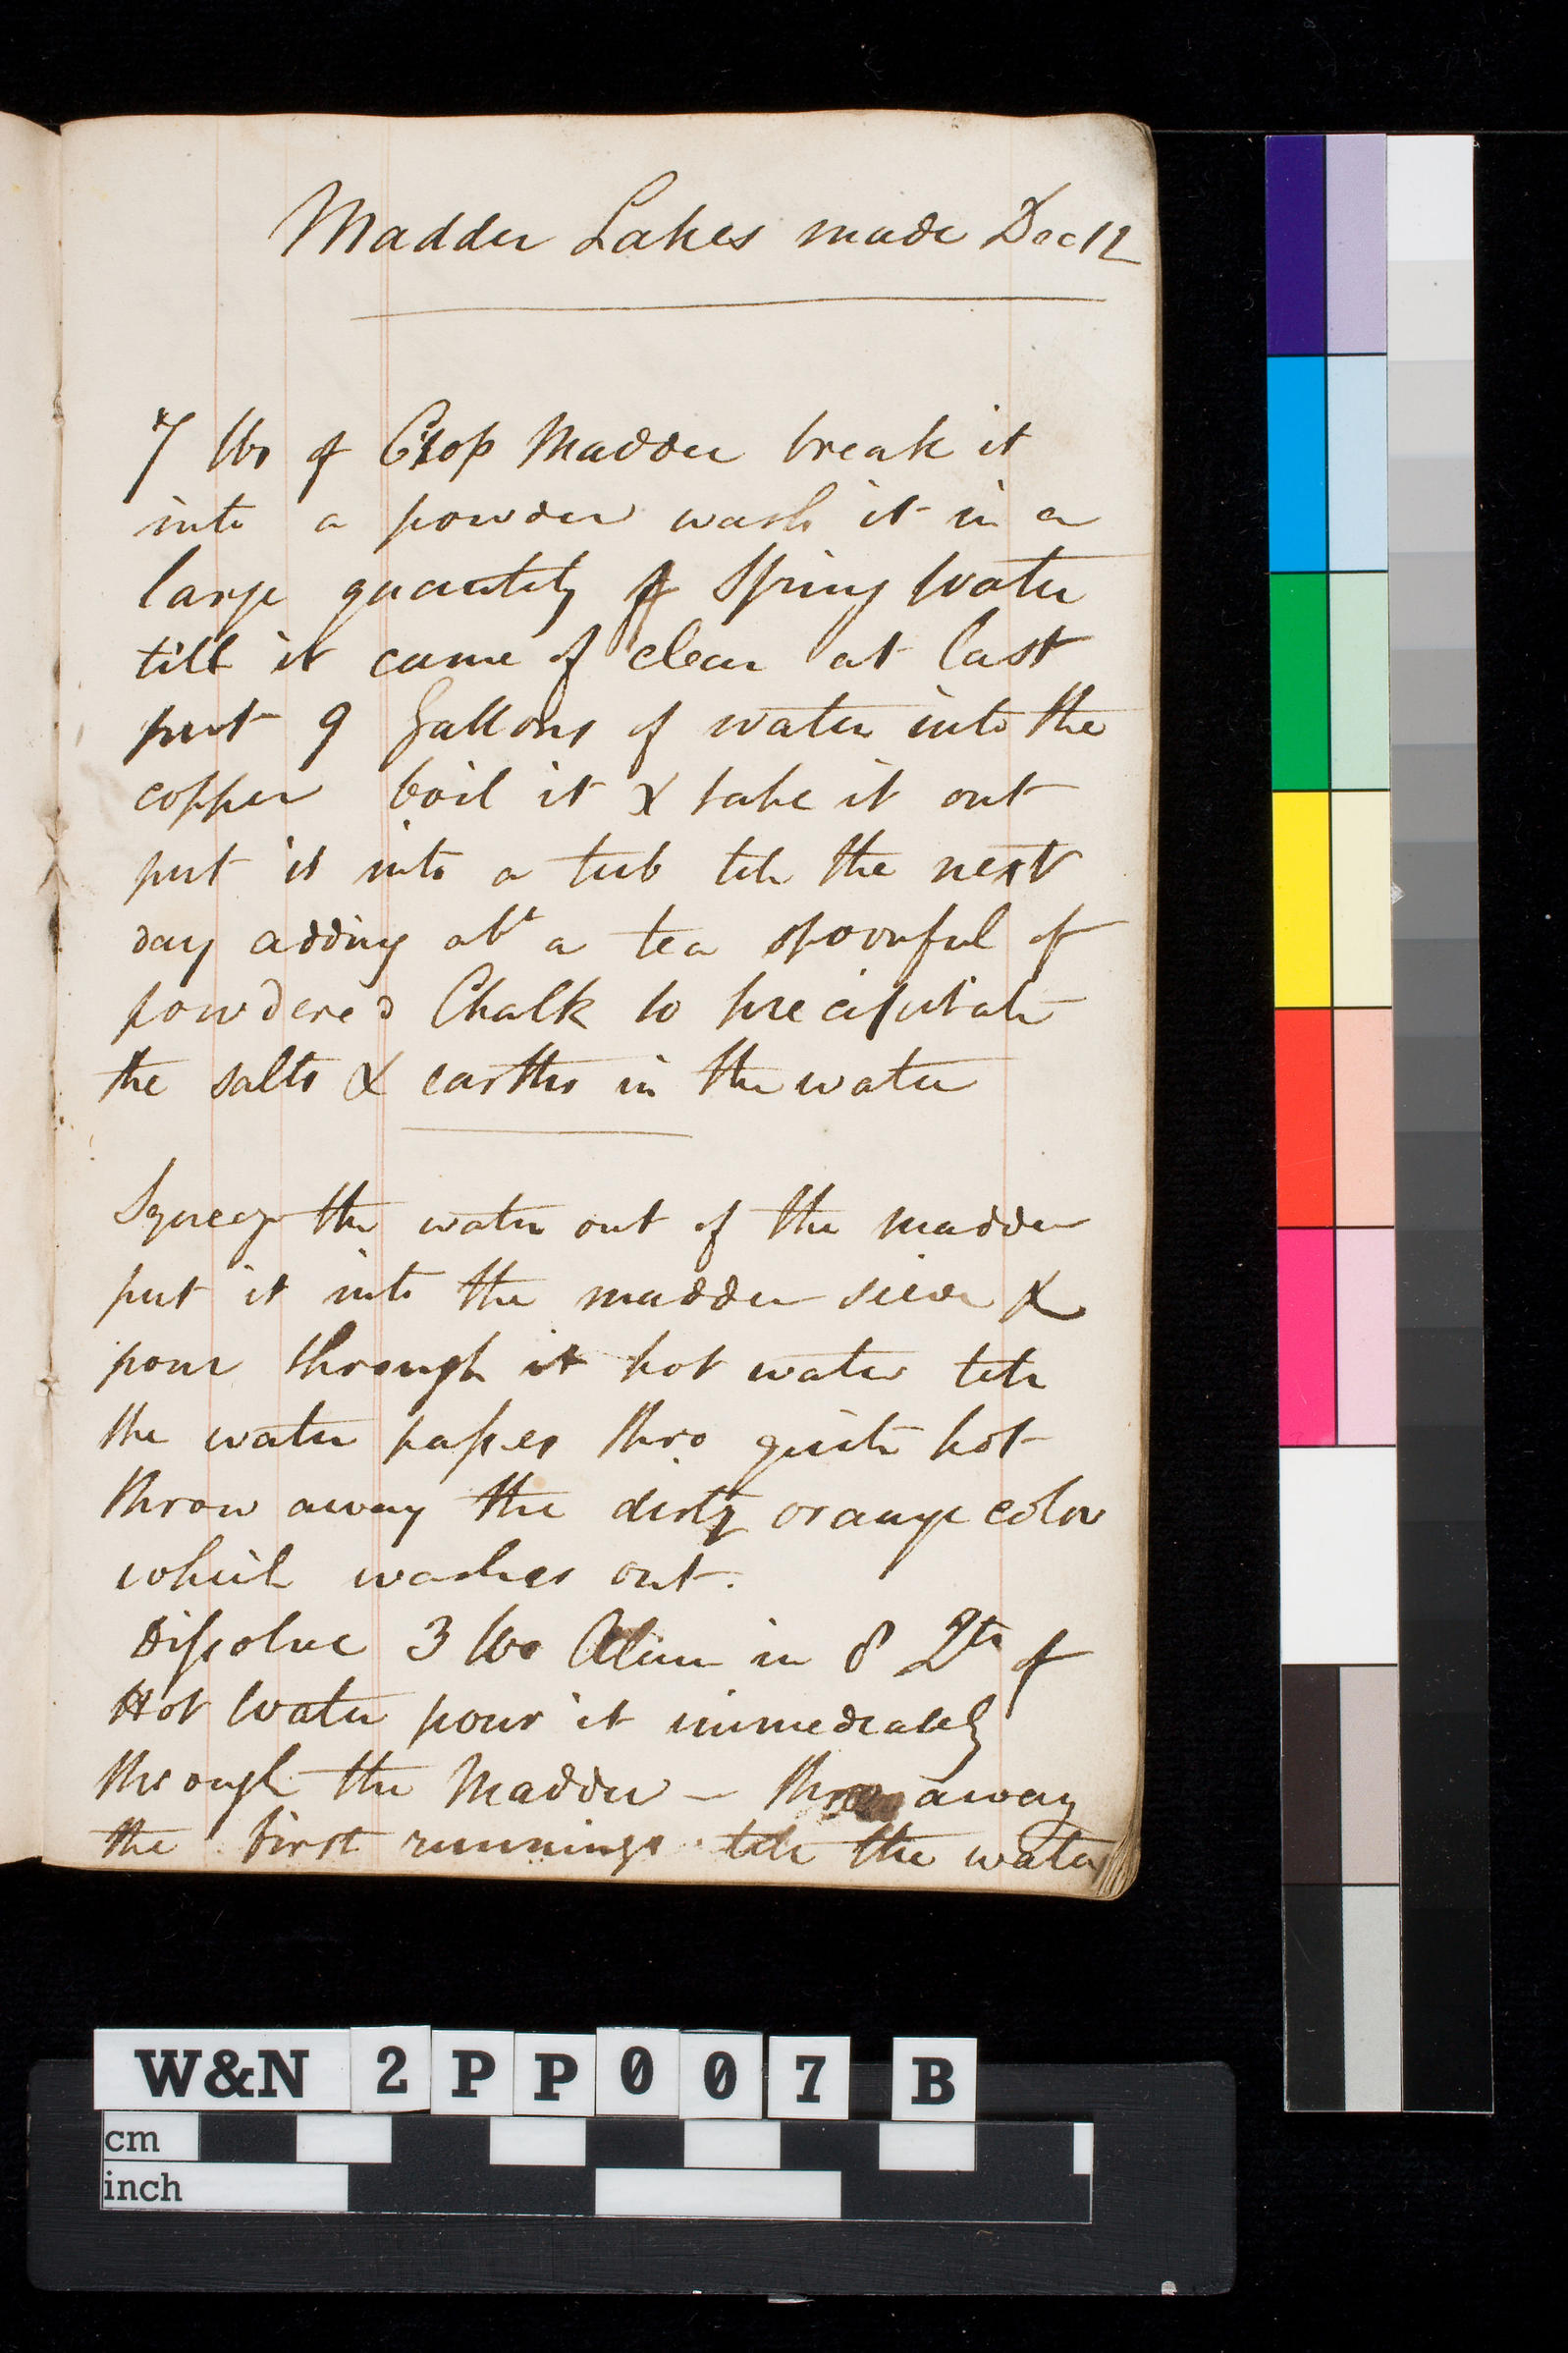 Madder Lakes made Dec 12
7 lbs of Crop Madder break it
into a powder wash it in a
large quantity of Spring Water
till it came of clear at last
put 9 Gallons of water into the
copper boil it & take it out
put it into a tub till the next
day adding abt a tea spoonful of
powdered Chalk to precipitate
the salts & earths in the water
Squeeze the water out of the madder
put it into the madder sieve &
pour through it hot water till
the water passes thro quite hot
throw away the dirty orange color
which washes out.
Dissolve 3 lbs Alum in 8 Qts of
Hot Water pour it immediately
through the Madder - throw away
the first runnings till the water
W&N 2PP007 B
cm
inch